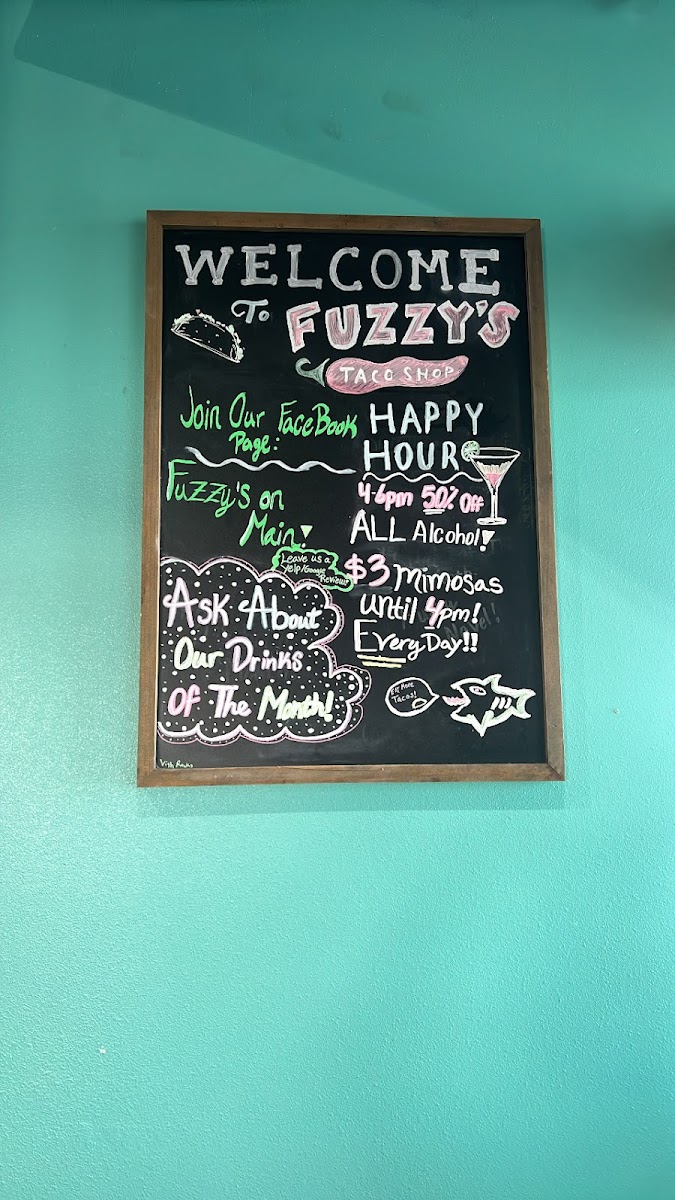 WELCOME
To FUZZY'S
TACO SHOP
Join Our FaceBook
Page:
Fuzzy's on
Main!
Leave us a
Yelp/Google
Review!
Ask About
Our Drinks
Of The Month!
HAPPY
HOUR
4-6pm 50% Off
ALL Alcohol!
$3 Mimosas
until 4pm!
EveryDay!!
Eat More
Tacos!